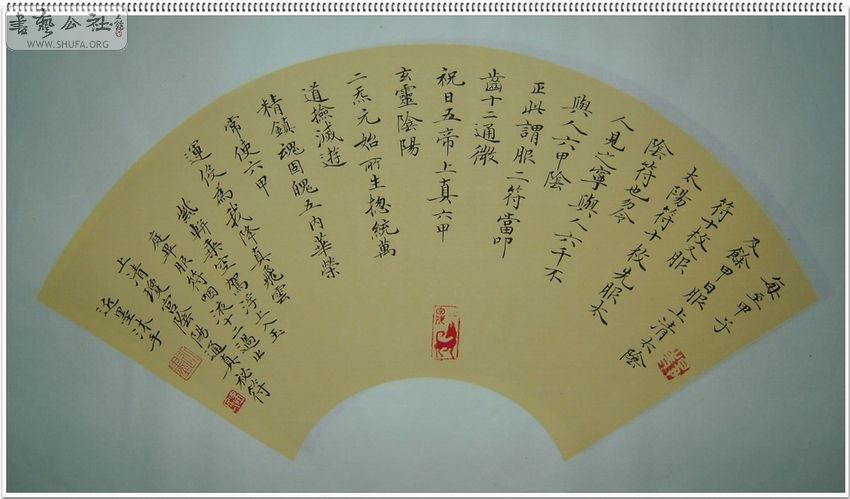 書藝公社
WWW.SHUFA.ORG
每至甲子
及餘甲日服上清太陰
符十枚又服
太陽符十枚先服太
陰符也勿令
人見之寧與人六千不
與人六甲陰
正此謂服二符當叩
齒十二通微
祝曰五帝上真六甲
玄靈陰陽
二炁元始所生揔統萬
道撿滅遊
精鎮魂固魄五內華榮
常使六甲
運役為我降真飛雲
鳳軒乘空駕浮上入玉
庭畢服符咽液十二過止
上清瓊宮陰陽通真祕符
墨沐手